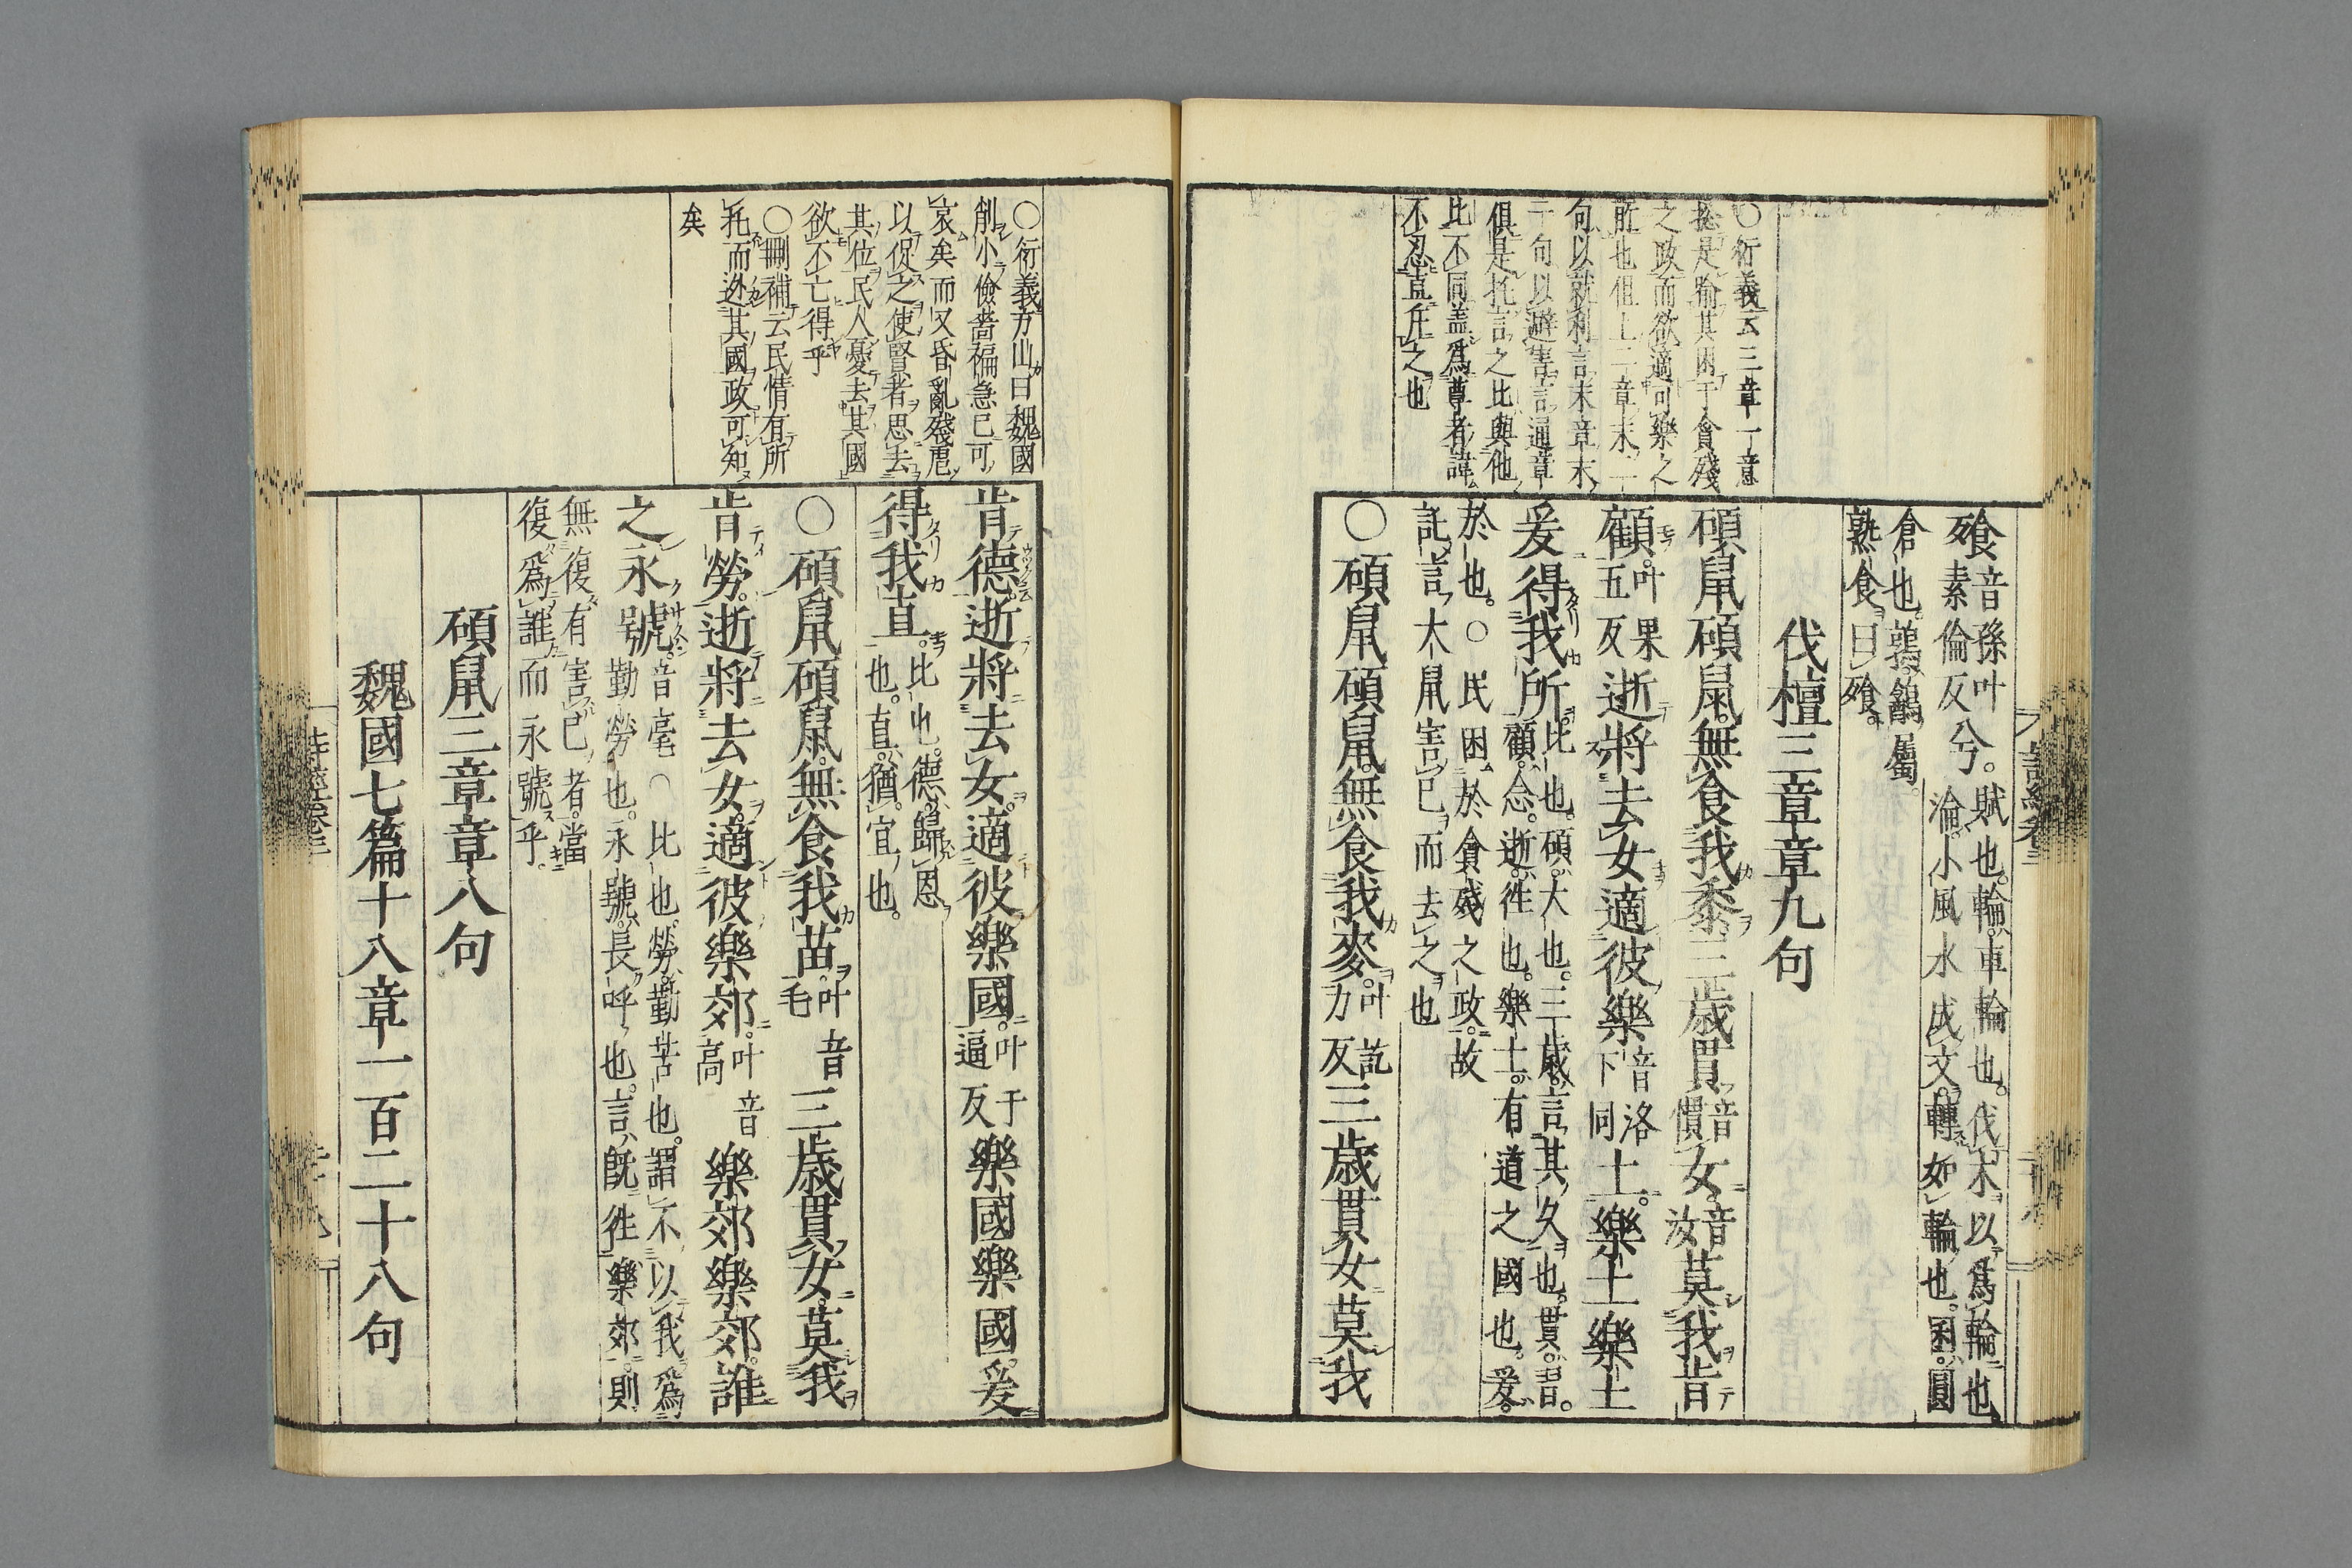 ○衍義云三章一意
揔是喻其困于貪殘
之政而欲適可樂之
所也但上二章末二
句以就利言末章末
二句以避害言通章
俱是托言之比與他
比不同盖爲尊者諱
不忍直斥之也
飱音孫叶素倫反兮。賦也。輪車輪也。伐木以爲輪也淪小風水成文轉如輪也。囷圓
倉也。鶉鷂屬。熟食曰飱。
伐檀三章章九句
碩鼠碩鼠。無食我黍三歲貫音慣女。音汝莫我肯
顧。叶果五反逝將去女適彼樂音洛下同土。樂土樂土
爰得我所。比也。碩大也。三歲言其久也。貫。習。顧念。逝徃也。樂土有道之國也。爰。
於也。○民困於貪殘之政。故託言大鼠害已而去之也
○碩鼠碩鼠。無食我麥。叶訖力反三歲貫女莫我
○衍義方山曰魏國
削小儉嗇褊急已可
哀矣而又昏亂殘虐
以促之使賢者思去
其位民人憂去其國
欲不亡得乎
○刪補云民情有所
托而迯其國政可知
矣
肯德。逝將去女。適彼樂國。叶于逼反樂國樂國。爰
得我直。比也。德歸恩也。直猶宜也。
○碩鼠碩鼠。無食我苗。叶音毛三歲貫女。莫我
肯勞。逝將去女。適彼樂郊。叶音高樂郊樂郊。誰
之永號。音毫○比也。勞勤苦也。謂不以我爲勤勞也。永號長呼也。言既徃樂郊。則
無復有害已者。當復爲誰而永號乎。
碩鼠三章章八句
魏國七篇十八章一百二十八句